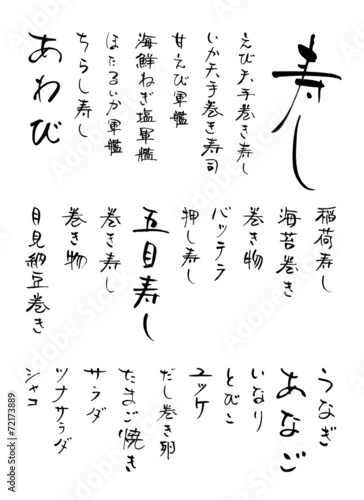 寿し
えび天手巻き寿し
いか天手巻き寿司
甘えび軍艦
海鮮ねぎ塩軍艦
ほたるいか軍艦
ちらし寿し
あわび
稲荷寿し
海苔巻き
巻き物
バッテラ
押し寿し
五目寿し
巻き寿し
巻き物
月見納豆巻き
うなぎ
あなご
いなり
とびこ
ユッケ
だし巻き卵
たまご焼き
サラダ
ツナサラダ
シャコ
Adobe Stock | #72173889